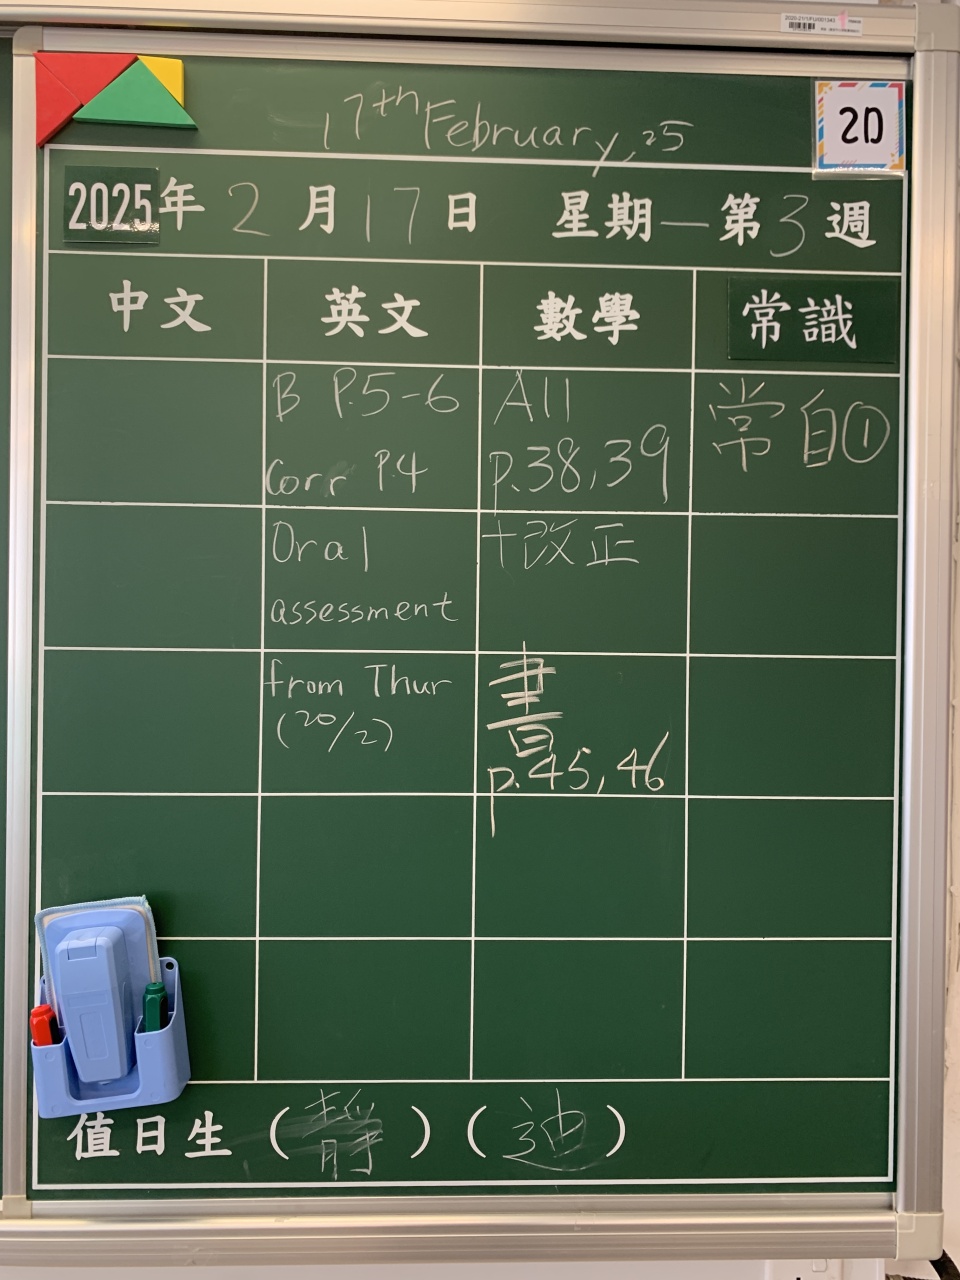 17th February, 25
2D
2025年2月17日 星期一第3週
中文 英文 數學 常識
B P.5-6
Corr P.4
Oral
assessment
from Thur
(20/2)
A11
p.38,39
+改正
書
p.45,46
常自①
值日生(靜)(迪)